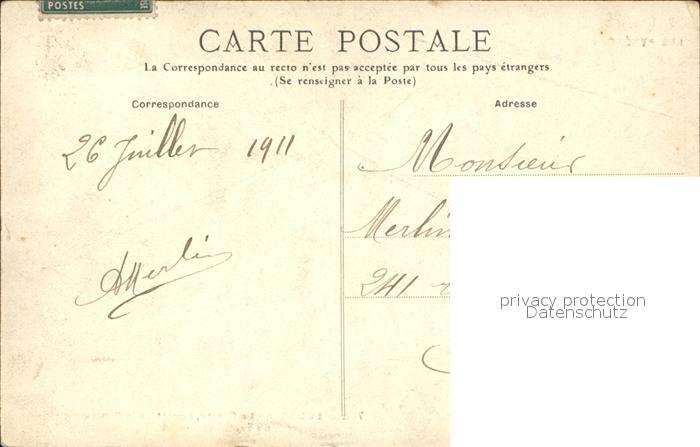 POSTES
CARTE POSTALE
La Correspondance au recto n'est pas acceptée par tous les pays étrangers
(Se renseigner à la Poste)
Correspondance
Adresse
26 Juillet 1911
Monsieur
Merlin
241
AMerlin
privacy protection
Datenschutz